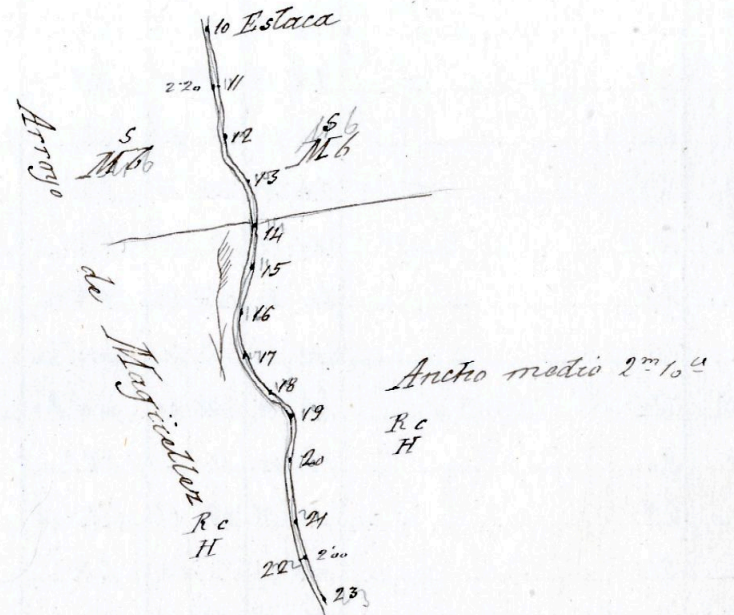 10 Estaca
2 20 11
12
S
M 6
S
M 6
13
14
15
16
17
18
19
20
21
22 2'00
23
Arroyo
de
Ancho medio 2m 10c
R c
H
R c
H